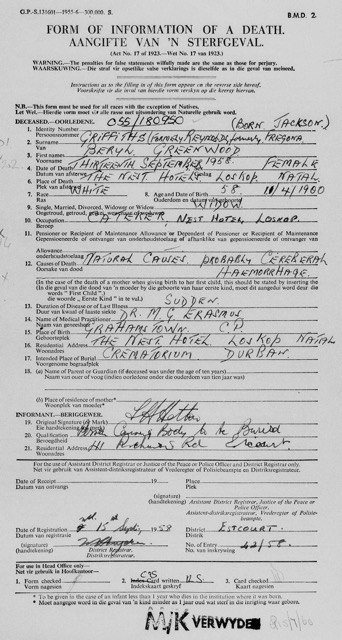 G.P.-S.131601—1955-6—300,000. S.
B.M.D. 2.
FORM OF INFORMATION OF A DEATH.
AANGIFTE VAN 'N STERFGEVAL.
(Act No. 17 of 1923.—Wet No. 17 van 1923.)
WARNING.—The penalties for false statements wilfully made are the same as those for perjury.
WAARSKUWING.—Die straf vir opsetlike valse verklarings is dieselfde as in die geval van meineed.
Instructions as to the filling in of this form appear on the reverse side hereof.
Voorskrifte in die invul van hierdie vorm verskyn op die keersy hiervan.
N.B.—This form must be used for all races with the exception of Natives.
Let Wel.—Hierdie vorm moet vir alle rasse met uitsondering van Naturelle gebruik word.
DECEASED.—OORLEDENE.
1. Identity Number
Persoonsnommer
(BORN JACKSON)
2. Surname
Van
GRIFFITHS (FORMERLY REYNOLDS, formerly FREGONA
3. First names
Voorname
BERYL GREENWOOD
4. Date of Death
Datum van afsterwe
THIRTEENTH SEPTEMBER 1958.
FEMALE
5. Place of Death
Plek van afsterwe
THE NEST HOTEL LOSKOP NATAL
7. Race
Ras
WHITE
8. Age and Date of Birth
Ouderdom en datum van geboorte
58. 10/4/1900
9. Single, Married, Divorced, Widowed or Widow
Ongetroud, getroud, geskei, wewenaar of weduwee
WIDOW
10. Occupation
Beroep
CATERER, NEST HOTEL, LOSKOP.
11. Pensioner or Recipient of Maintenance Allowance or Dependent of Pensioner or Recipient of Maintenance
Allowance
onderhoudstoelaag
12. Causes of Death
Oorsake van dood
NATURAL CAUSES, PROBABLY CEREBERAL
HAEMORRHAGE.
(In the case of the death of a mother when giving birth to her first child, this should be stated by inserting the
words "First Child".)
13. Duration of Disease or of Last Illness
Duur van kwaal of laaste siekte
SUDDEN.
14. Name of Medical Practitioner
Naam van geneesheer
DR. M. G. ERASMUS
15. Place of Birth
Geboorteplek
GRAHAMSTOWN. C.P.
16. Residential Address
Woonadres
THE NEST HOTEL LOSKOP NATAL
17. Intended Place of Burial
Voorgenome begraafplek
CREMATORIUM DURBAN.
18. (a) Name of Parent or Guardian (if deceased was under the age of ten years)
(b) Place of residence of mother*
Woonplek van moeder*
INFORMANT.—BERIGGEWER.
19. Original Signature
Eie handtekening
20. Qualification
Bevoegdheid
Causing Body to be Buried
21. Residential Address
Woonadres
41 Richmond Rd Estcourt
For the use of Assistant District Registrar or Justice of the Peace or Police Officer and District Registrar only.
Net vir gebruik van Assistent-distriksregistrateur, Vrederegter of Polisiebeampte en Distriksregistrateur.
Date of Receipt 19
Datum van ontvangs
Place
Plek
(signature)
(handtekening)
Assistant District Registrar, Justice of the Peace or
Police Officer.
Assistent-distriksregistrateur, Vrederegter of Polisie-
beampte.
Date of Registration 15 Sept 1958
Datum van registrasie
District
Distrik
ESTCOURT.
(signature)
(handtekening)
District Registrar.
Distriksregistrateur.
No. of Entry
No. van inskrywing
42/58.
For use in Head Office only—
Net vir gebruik in Hoofkantoor—
1. Form checked
Vorm nagesien
2. Index Card written
Indekskaart geskryf
3. Card checked
Kaart nagesien
* To be given in the case of an infant less than 1 year old who dies in the institution where it was born.
* Moet aangegee word in die geval van 'n kind minder as 1 jaar oud wat sterf in die inrigting waar gebore.
M/K VERWYDER